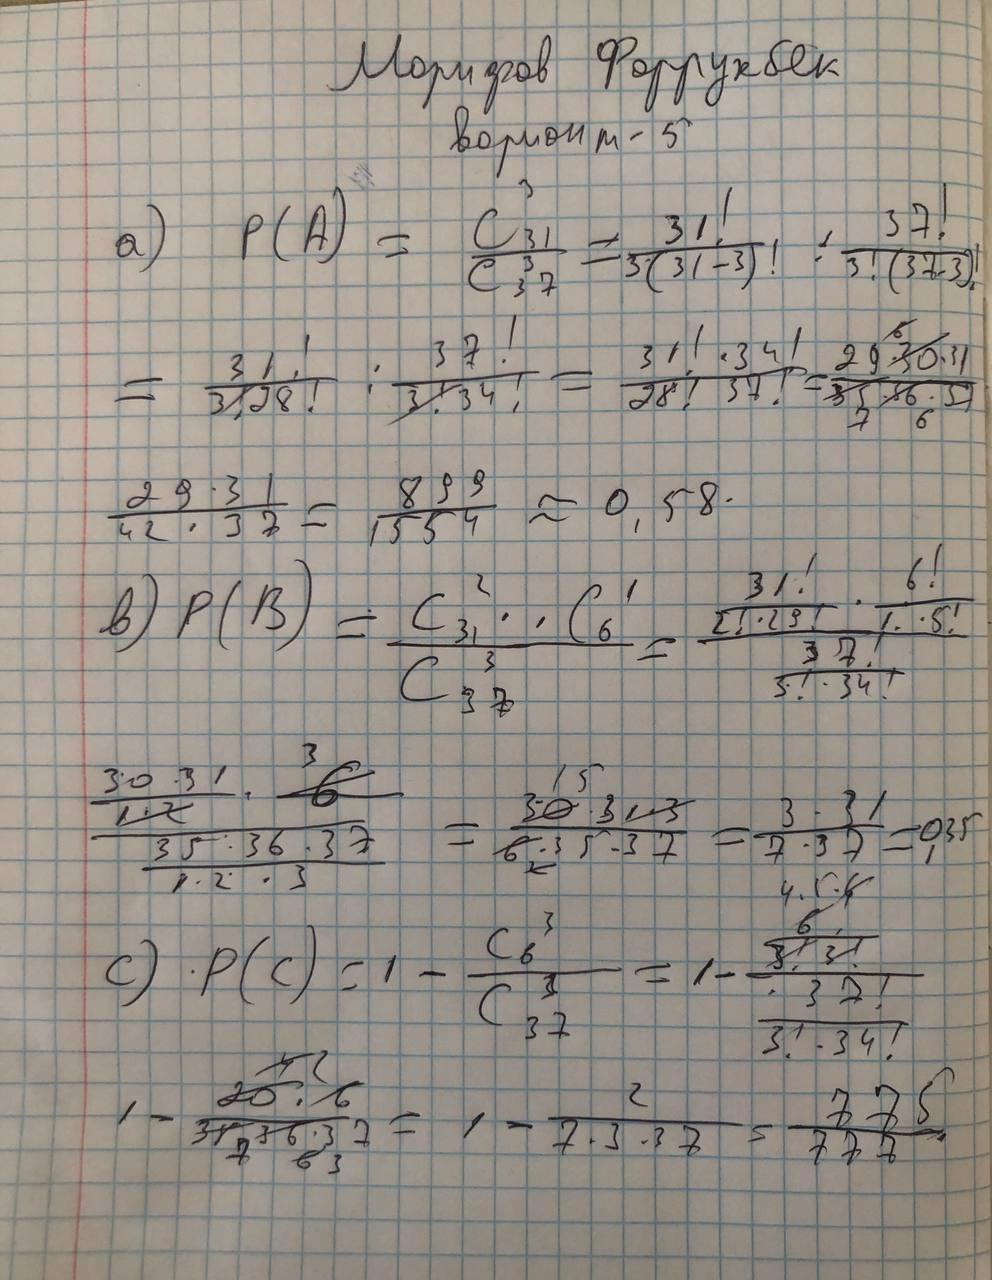 Моридгов Форрухбек
вариант - 5
a) P(A) = C_{31}^{3} / C_{37}^{3} = 31! / 3(31-3)! : 37! / 3!(37-3)!
= 31! / 3!28! : 37! / 3!34! = 31! · 34! / 28! 37! = 29·30·31 / 35·36·37
29·31 / 42·37 = 899 / 1554 ≈ 0,58.
в) P(B) = C_{31}^{2} · C_{6}^{1} / C_{37}^{3} = 31! / 2!·29! · 6! / 1·5! / 37! / 3!·34!
30·31 / 1·2 · 6 / 35·36·37 / 1·2·3 = 30·31·3 / 6·35·37 = 3·31 / 7·37 = 0,35
c) P(C) = 1 - C_{6}^{3} / C_{37}^{3} = 1 - 6! / 3! 3! / 37! / 3!·34!
1 - 20·6 / 35·36·37 = 1 - 2 / 7·3·37 = 775 / 777